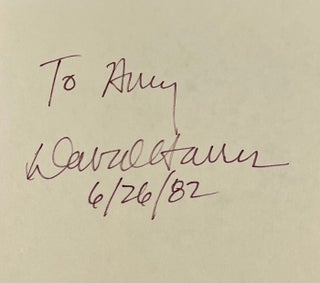 To Amy
David Harris
6/26/82